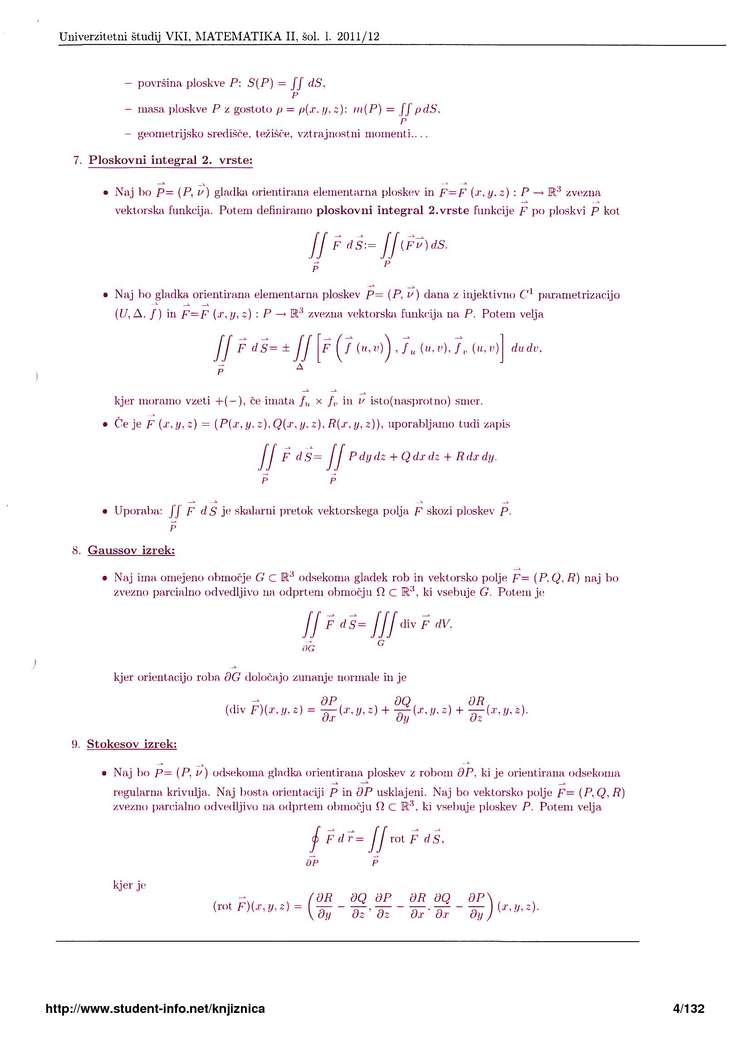 Univerzitetni študij VKI, MATEMATIKA II, šol. l. 2011/12
– površina ploskve P: S(P) = ∬_P dS,
– masa ploskve P z gostoto ρ = ρ(x, y, z): m(P) = ∬_P ρ dS,
– geometrijsko središče, težišče, vztrajnostni momenti....
7. Ploskovni integral 2. vrste:
• Naj bo P⃗ = (P, ν⃗) gladka orientirana elementarna ploskev in F⃗=F⃗ (x, y, z) : P → ℝ³ zvezna
vektorska funkcija. Potem definiramo ploskovni integral 2.vrste funkcije F⃗ po ploskvi P⃗ kot
∬_P⃗ F⃗ d S⃗ := ∬_P (F⃗ν⃗) dS.
• Naj bo gladka orientirana elementarna ploskev P⃗ = (P, ν⃗) dana z injektivno C¹ parametrizacijo
(U, Δ, f⃗) in F⃗=F⃗ (x, y, z) : P → ℝ³ zvezna vektorska funkcija na P. Potem velja
∬_P⃗ F⃗ d S⃗ = ± ∬_Δ [F⃗ (f⃗ (u, v)) , f⃗_u (u, v), f⃗_v (u, v)] du dv,
kjer moramo vzeti +(−), če imata f⃗_u × f⃗_v in ν⃗ isto(nasprotno) smer.
• Če je F⃗ (x, y, z) = (P(x, y, z), Q(x, y, z), R(x, y, z)), uporabljamo tudi zapis
∬_P⃗ F⃗ d S⃗ = ∬_P⃗ P dy dz + Q dx dz + R dx dy.
• Uporaba: ∬_P⃗ F⃗ d S⃗ je skalarni pretok vektorskega polja F⃗ skozi ploskev P⃗.
8. Gaussov izrek:
• Naj ima omejeno območje G ⊂ ℝ³ odsekoma gladek rob in vektorsko polje F⃗ = (P, Q, R) naj bo
zvezno parcialno odvedljivo na odprtem območju Ω ⊂ ℝ³, ki vsebuje G. Potem je
∬_∂G⃗ F⃗ d S⃗ = ∭_G div F⃗ dV,
kjer orientacijo roba ∂G⃗ določajo zunanje normale in je
(div F⃗)(x, y, z) = ∂P/∂x (x, y, z) + ∂Q/∂y (x, y, z) + ∂R/∂z (x, y, z).
9. Stokesov izrek:
• Naj bo P⃗ = (P, ν⃗) odsekoma gladka orientirana ploskev z robom ∂P⃗, ki je orientirana odsekoma
regularna krivulja. Naj bosta orientaciji P⃗ in ∂P⃗ usklajeni. Naj bo vektorsko polje F⃗ = (P, Q, R)
zvezno parcialno odvedljivo na odprtem območju Ω ⊂ ℝ³, ki vsebuje ploskev P. Potem velja
∮_∂P⃗ F⃗ d r⃗ = ∬_P⃗ rot F⃗ d S⃗,
kjer je
(rot F⃗)(x, y, z) = (∂R/∂y − ∂Q/∂z, ∂P/∂z − ∂R/∂x, ∂Q/∂x − ∂P/∂y) (x, y, z).
http://www.student-info.net/knjiznica
4/132